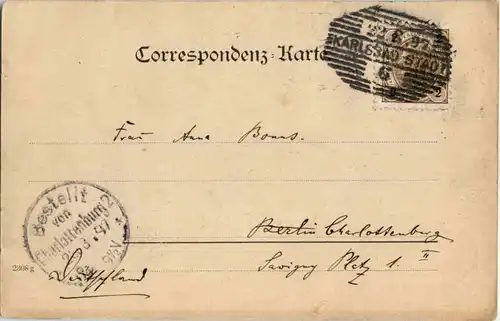 Correspondenz-Karte
KARLSBAD STADT
6
2 2
Frau Anna Bonns.
Bestellt
von
Charlottenburg 2
97
Berlin Charlottenberg
Savigny Platz 1. II
2306 g
Deutschland